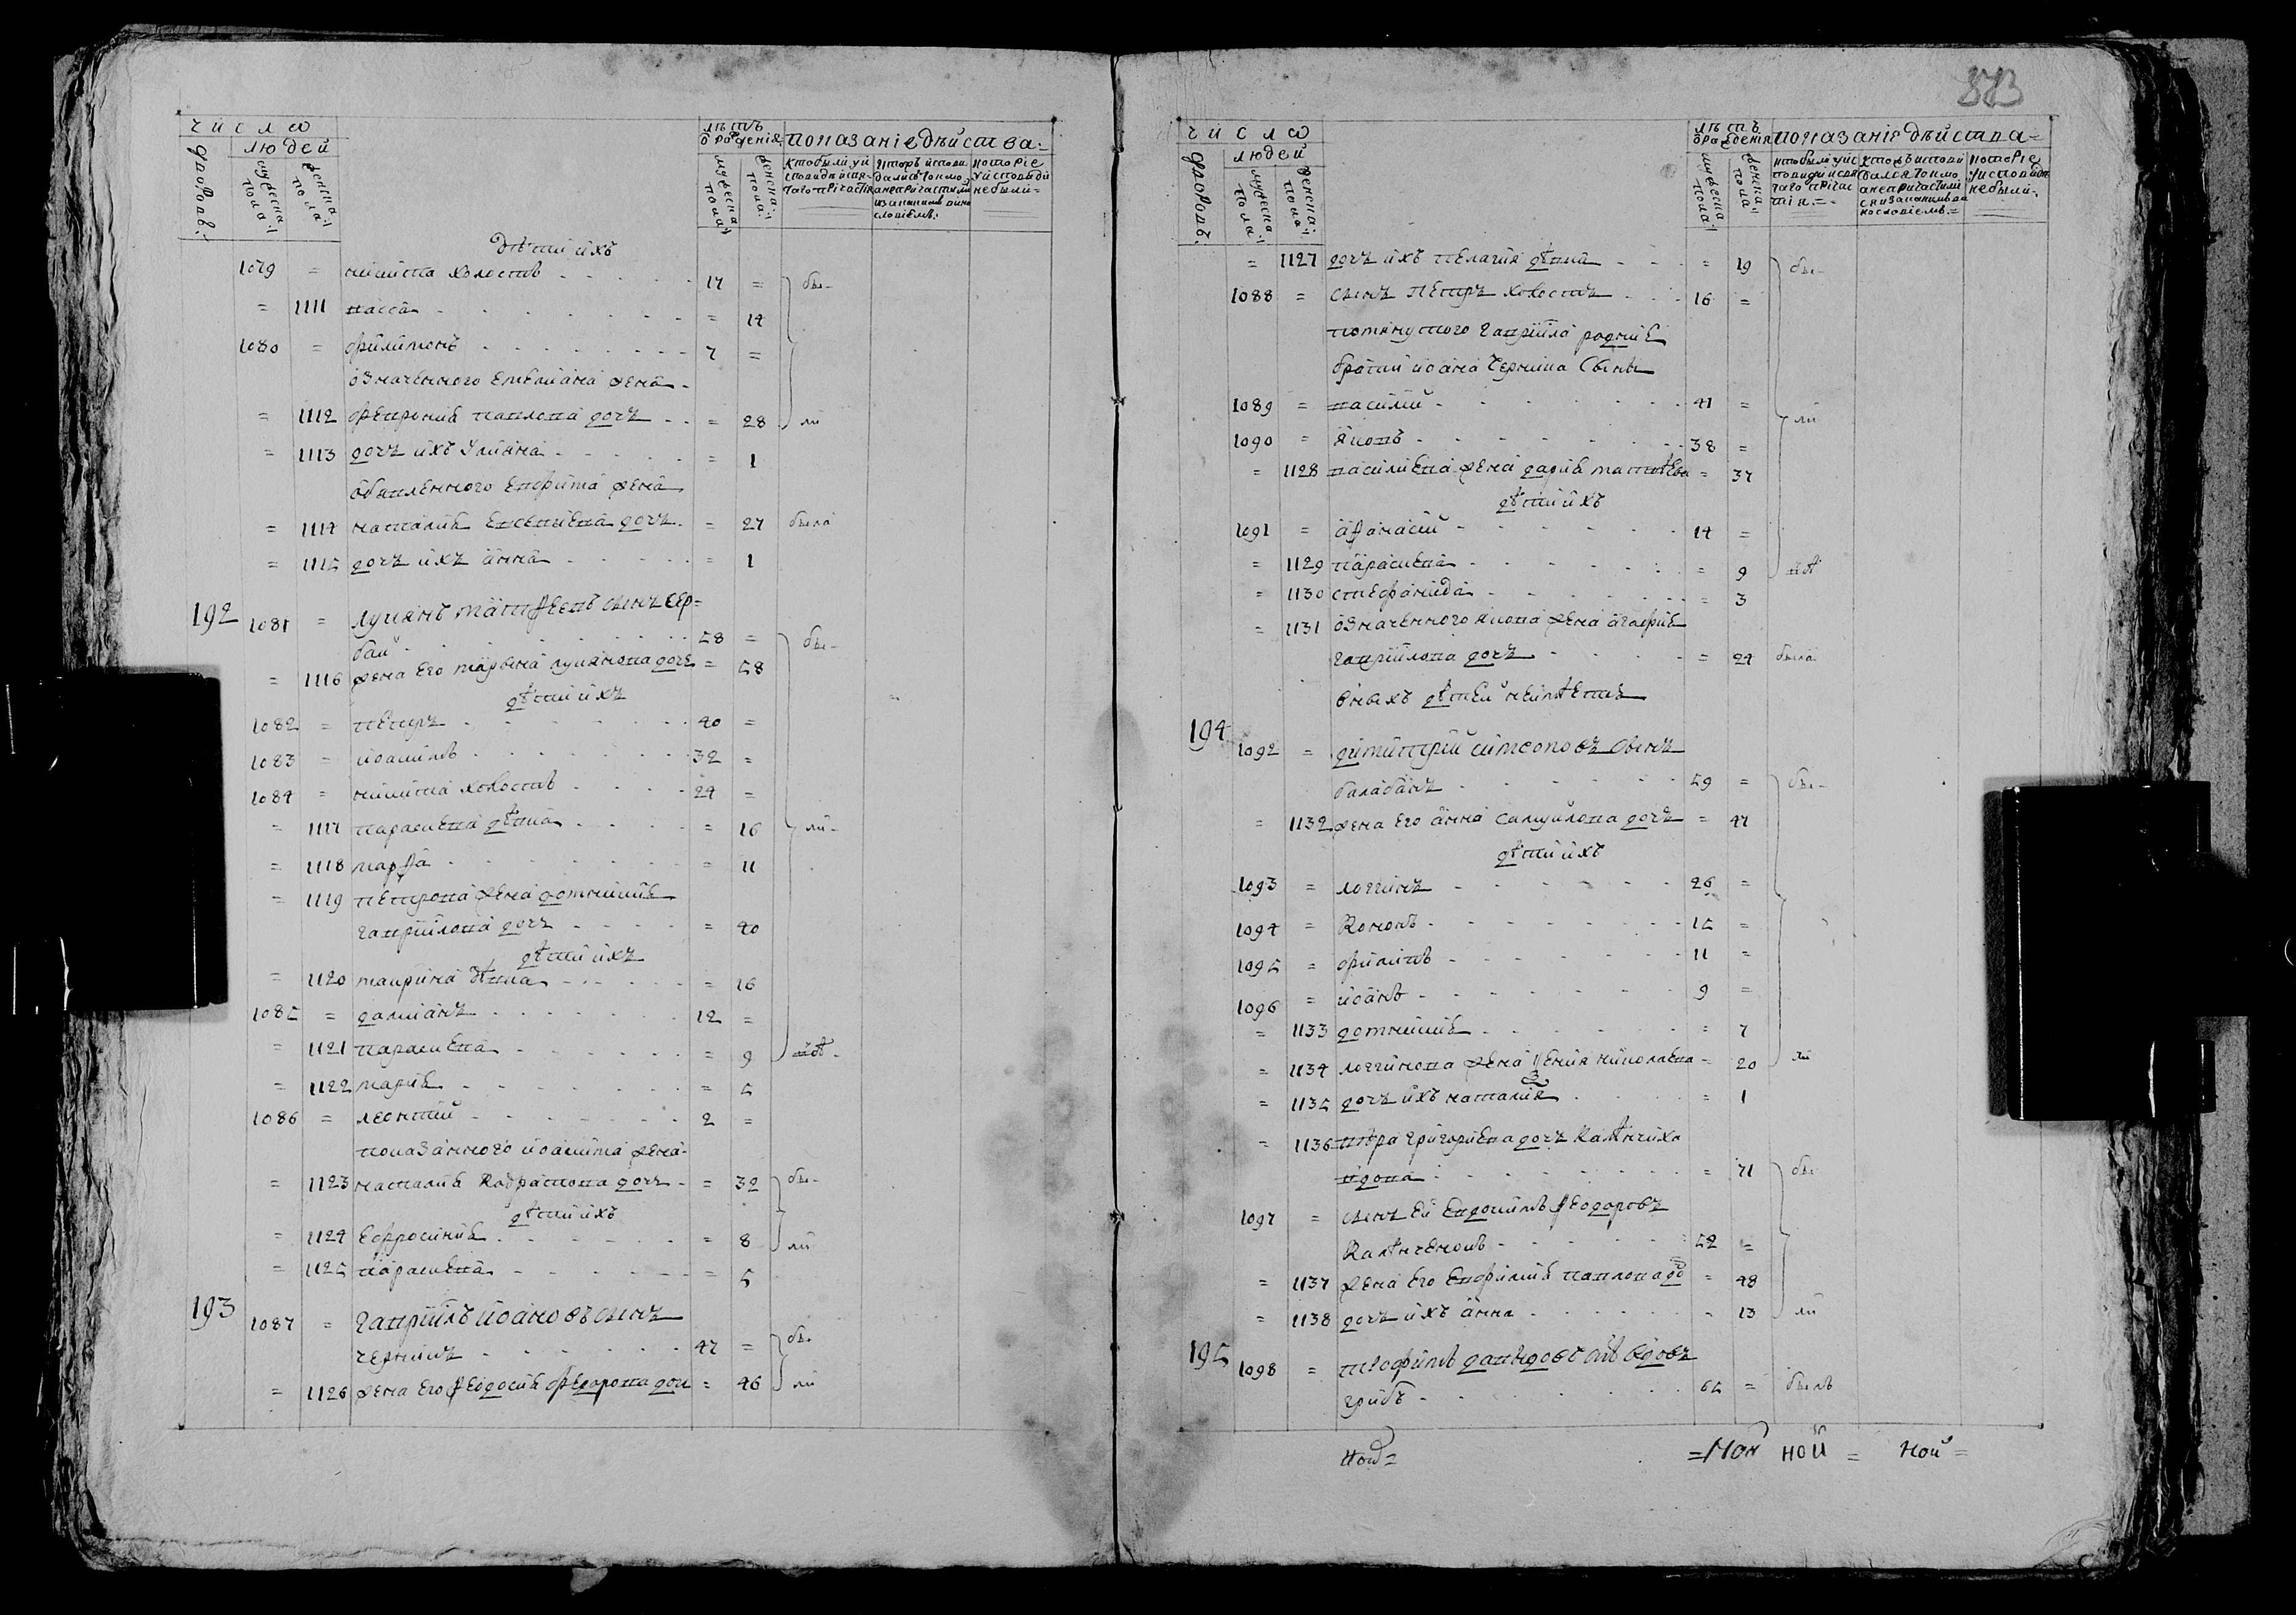 число
людей
дворовъ
мужеска пола
женска пола
лѣтъ ѿ рожденія
мужеска пола
женска пола
показаніе дѣйства
кто были у исповѣди и святаго причастія
котории исповѣдались токмо а не причастились и за какимъ винословіемъ
которіе у исповѣди не были
дѣти ихъ
1079 = никита холостъ 17 = бы-
= 1111 васса = 14
1080 = филимонъ 7 =
означенного емелиана жена
= 1112 феврония павлова дочъ = 28 ли
= 1113 дочъ ихъ улияна = 1
обявленного
жена
= 1114 наталия евсеиева дочъ = 27 была
= 1115 дочъ ихъ анна = 1
192 1081 = лукиянъ матфеевъ сынъ сер=
бай 58 = бы-
= 1116 жена его марына лукянова дочъ = 58
дѣти ихъ
1082 = петръ 40 =
1083 = иоакимъ 32 =
1084 = никита холостъ 24 =
= 1117 параскева дѣвка = 16 ли-
= 1118 марфа = 11
= 1119 петрова жена домникия
гавриилова дочъ = 40
дѣти ихъ
= 1120 маврина дѣвка = 16
1085 = дамианъ 12 =
= 1121 параскева = 9
= 1122 мария = 5
1086 = леонтий 2 =
показанного иоакима жена
= 1123 наталия кодратова дочъ = 32 бы-
дѣти ихъ
= 1124 ефросиния = 8 ли
= 1125 параскева = 5
193 1087 = гавриилъ иоановъ сынъ
чернишъ 47 = бы
= 1126 жена его феодосия федорова дочъ = 46 ли
373
число
людей
дворовъ
мужеска пола
женска пола
лѣтъ ѿ рожденія
мужеска пола
женска пола
показанія дѣйства=
кто были у исповѣди и святаго причастія
кто исповѣдался токмо а не причастились и за какимъ винословіемъ
которіе у исповѣди не были
= 1127 дочъ ихъ пелагия дѣвка = 19 бы-
1088 = сынъ петръ холостъ 16 =
помянутого гавриила родние
братия иоана черниша сыны
1089 = василий 41 = ли
1090 = яковъ 38 =
= 1128 василиева жена дария матвѣева = 37
дѣти ихъ
1091 = афанасий 14 =
= 1129 параскева = 9
= 1130 стефанида = 3
= 1131 означенного якова жена агафия
гавриилова дочъ = 24 была
оныхъ дѣтей неимѣетъ
194 1092 = димитрий симеоновъ сынъ
балабанъ 59 = бы-
= 1132 жена его анна самуйлова дочъ = 47
дѣти ихъ
1093 = логгинъ 26 =
1094 = кононъ 15 =
1095 = филипъ 11 =
1096 = иоанъ 9 =
= 1133 домникия = 7
= 1134 логгинова жена ксения николаева = 20 ли
= 1135 дочъ ихъ наталия = 1
= 1136 вѣра григориева дочъ калѣничиха
вдова = 71 бы
1097 = сынъ ей евдокимъ феодоровъ
калѣниченокъ 52 =
= 1137 жена его евфимия павлова до = 48
= 1138 дочъ ихъ анна = 13 ли
195 1098 = трофимъ давыдовъ сынъ вдовъ
грибъ 65 = былъ